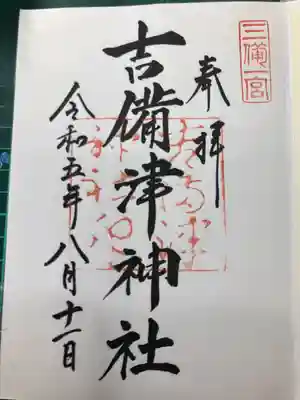 三備一宮
奉拝
吉備津神社
令和五年八月十一日